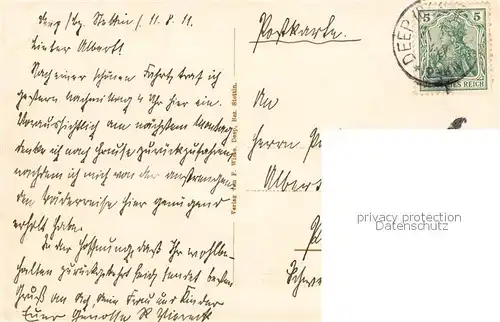 Deep / bz. Stettin / 11.8.11.
Lieber Albert!
Nach einer schönen Fahrt traf ich
gestern Nachmittag 4 Uhr hier ein.
Voraussichtlich am nächsten Montag
denke ich nach Hause zurückzufahren,
nachdem ich mich von der anstrengen
den Räderreise hier genügend
erholt habe.
In der Hoffnung, daß Ihr wohlbe-
halten zurückgekehrt seid sendet besten
Gruß an Dich, Deine Frau und Kinder
Euer Genosse R Viereck
Verlag von F. Witte, Deep, Bez. Stettin.
Postkarte.
An
Herrn
Albert
Schwe
5 5
DEEP
DEUTSCHES REICH
privacy protection
Datenschutz